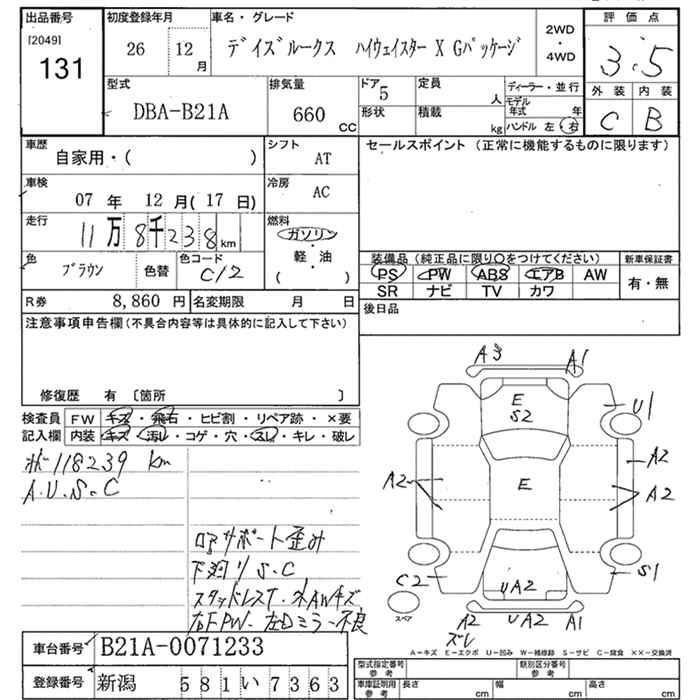 出品番号
[2049]
131
初度登録年月
26 12月
車名・グレード
デイズルークス ハイウェイスター X Gパッケージ
2WD
・
4WD
評価点
3.5
外装 内装
C B
型式
DBA-B21A
排気量
660 cc
ドア 5
形状
定員 人
積載 kg
ディーラー・並行
モデル年式 年
ハンドル 左・右
車歴
自家用・( )
シフト
AT
セールスポイント (正常に機能するものに限ります)
車検
07 年 12 月(17 日)
冷房
AC
走行
11万8千238km
燃料
ガソリン
・
軽・油
( )
色
ブラウン
色替
色コード
C/2
装備品(純正品に限り○をつけてください)
新車保証書
PS PW ABS エアB AW
SR ナビ TV カワ
有・無
R券 8,860 円
名変期限 月 日
後日品
注意事項申告欄(不具合内容等は具体的に記入して下さい)
修復歴 有 〔箇所 〕
検査員記入欄
FW キズ・飛石・ヒビ割・リペア跡・×要
内装 キズ・汚レ・コゲ・穴・スレ・キレ・破レ
118239 km
A.U.S.C
ロアサポート歪み
下廻りS.C
スタッドレスT・外AWキズ
右FPW・左Dミラー不良
A3 A1
E
S2
U1
A2
E
A2
A2
C2
UA2
S1
スペア
A2
ズレ
UA2
A1
A-キズ E-エクボ U-凹み W-補修跡 S-サビ C-腐食 ××-交換済
車台番号 B21A-0071233
登録番号 新潟 581い7363
型式指定番号 参考
類別区分番号 参考
車庫証明用 参考
長さ cm
幅 cm
高さ cm